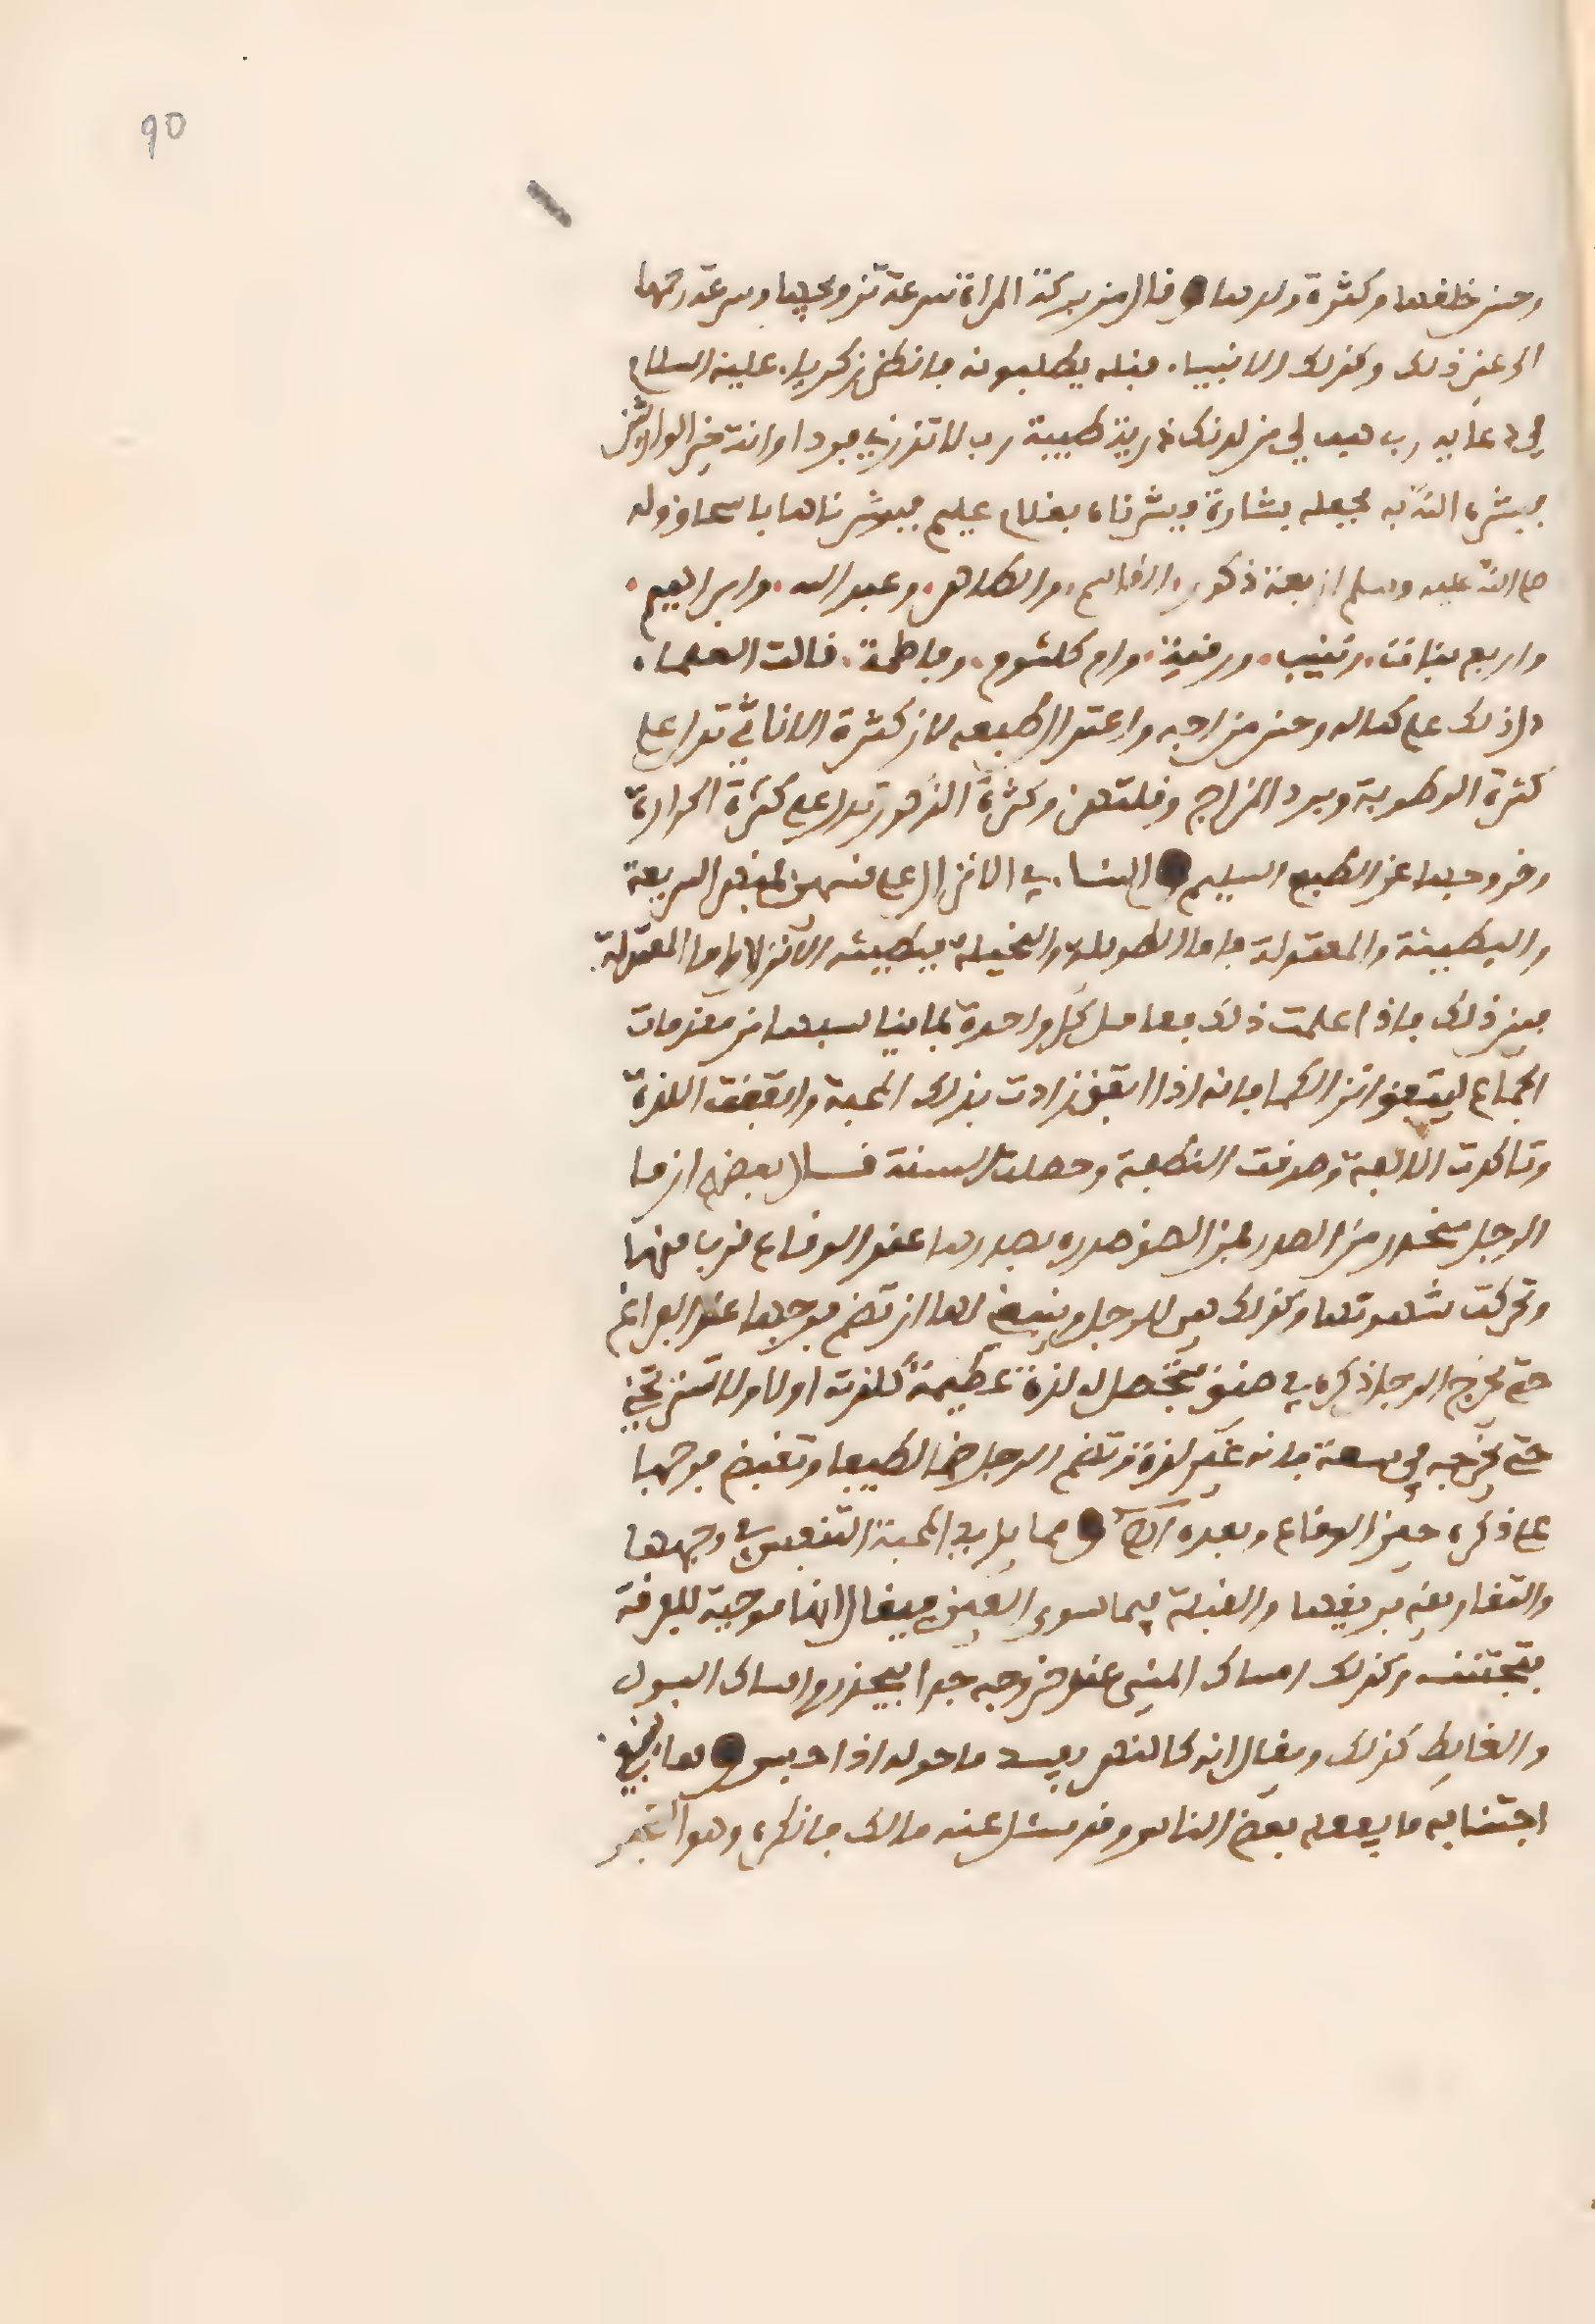 90
وحسن خلقها وكثرة ولدها وقال من بركة المراة سرعة تزويجها وسرعة رحمها
الى غير ذلك وكذلك الانبياء قبله يطلبونه فانظر زكرياء عليه السلام
في دعايه رب هب لي من لدنك ذرية طيبة رب لا تذرني فردا وانت خير الوارثين
فبشره الله به فجعله بشارة وبشرناه بغلام عليم فبشرناها باسحاق وله
صلى الله عليه وسلم اربعة ذكور القاسم والطاهر وعبد الله وابراهيم
واربع بنات زينب ورقية وام كلثوم وفاطمة قالت العلماء
دل ذلك على كماله وحسن مزاجه واعتدال طبعه لان كثرة الاناثي تدل على
كثرة الرطوبة وبرد المزاج وقلتهن وكثرة الذكور تدل على كثرة الحرارة
وخروجها عن الطبع السليم والنساء في الانزال على منهن السريعة
والبطيئة والمعتدلة فاما الطويلة والنحيلة فبطيئه الانزال واما المعتدلة
فبين ذلك فاذا علمت ذلك فعامل كل واحدة بما يناسبها من مقدمات
الجماع ليتفق انزالكما فانه اذا اتفق زادت بذلك المحبة واتفقت اللذة
وتاكدت الالفة وصدقت النطفة وحصلت السنة قال بعضهم ان ما
الرجل ينحدر من الصدر فمن الصق صدره بصدرها عند الوقاع قرب منهما
وتحركت شهوتها وكذلك هي للرجل وينبغي لها ان تضم فرجها عند الفراغ
حتى يخرج الرجل ذكره في ضيق فتحصل له لذة عظيمة كلذته اولا ولا تسترخي
حتى يخرجه في سعة فانه غير لذة وتضم الرجل ضما لطيفا وتقبض فرجها
على ذكره حين الوقاع وبعده ومما يزيد في المحبة التنفس في وجهها
والتقاء ريقه بريقها والقبلة فيما سوى العين فيقال انها موجبة للفرقة
فتجتنب وكذلك امساك المني عند خروجه جدا فيحذر وامساك البول
والغايط كذلك ويقال انه كالنهر يفسد ما حوله اذا حبس ومما ينبغي
اجتنابه ما يفعله بعض الناس وقد سئل عنه مالك فانكره وهو